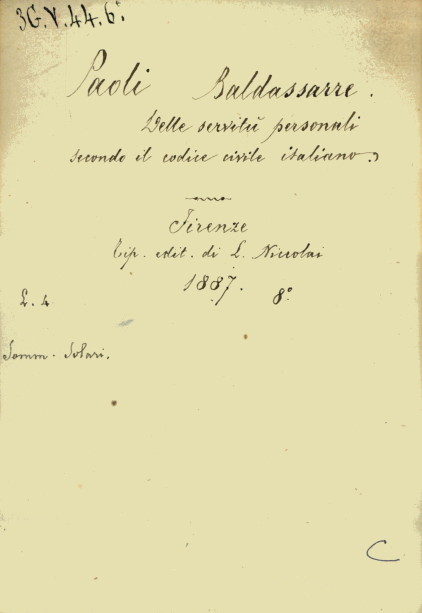 3G.V.44.6°.
Paoli Baldassarre.
Delle servitù personali
secondo il codice civile italiano.
Firenze
Tip. edit. di L. Niccolai
1887. 8°.
L. 4
Somm. Solari.
C